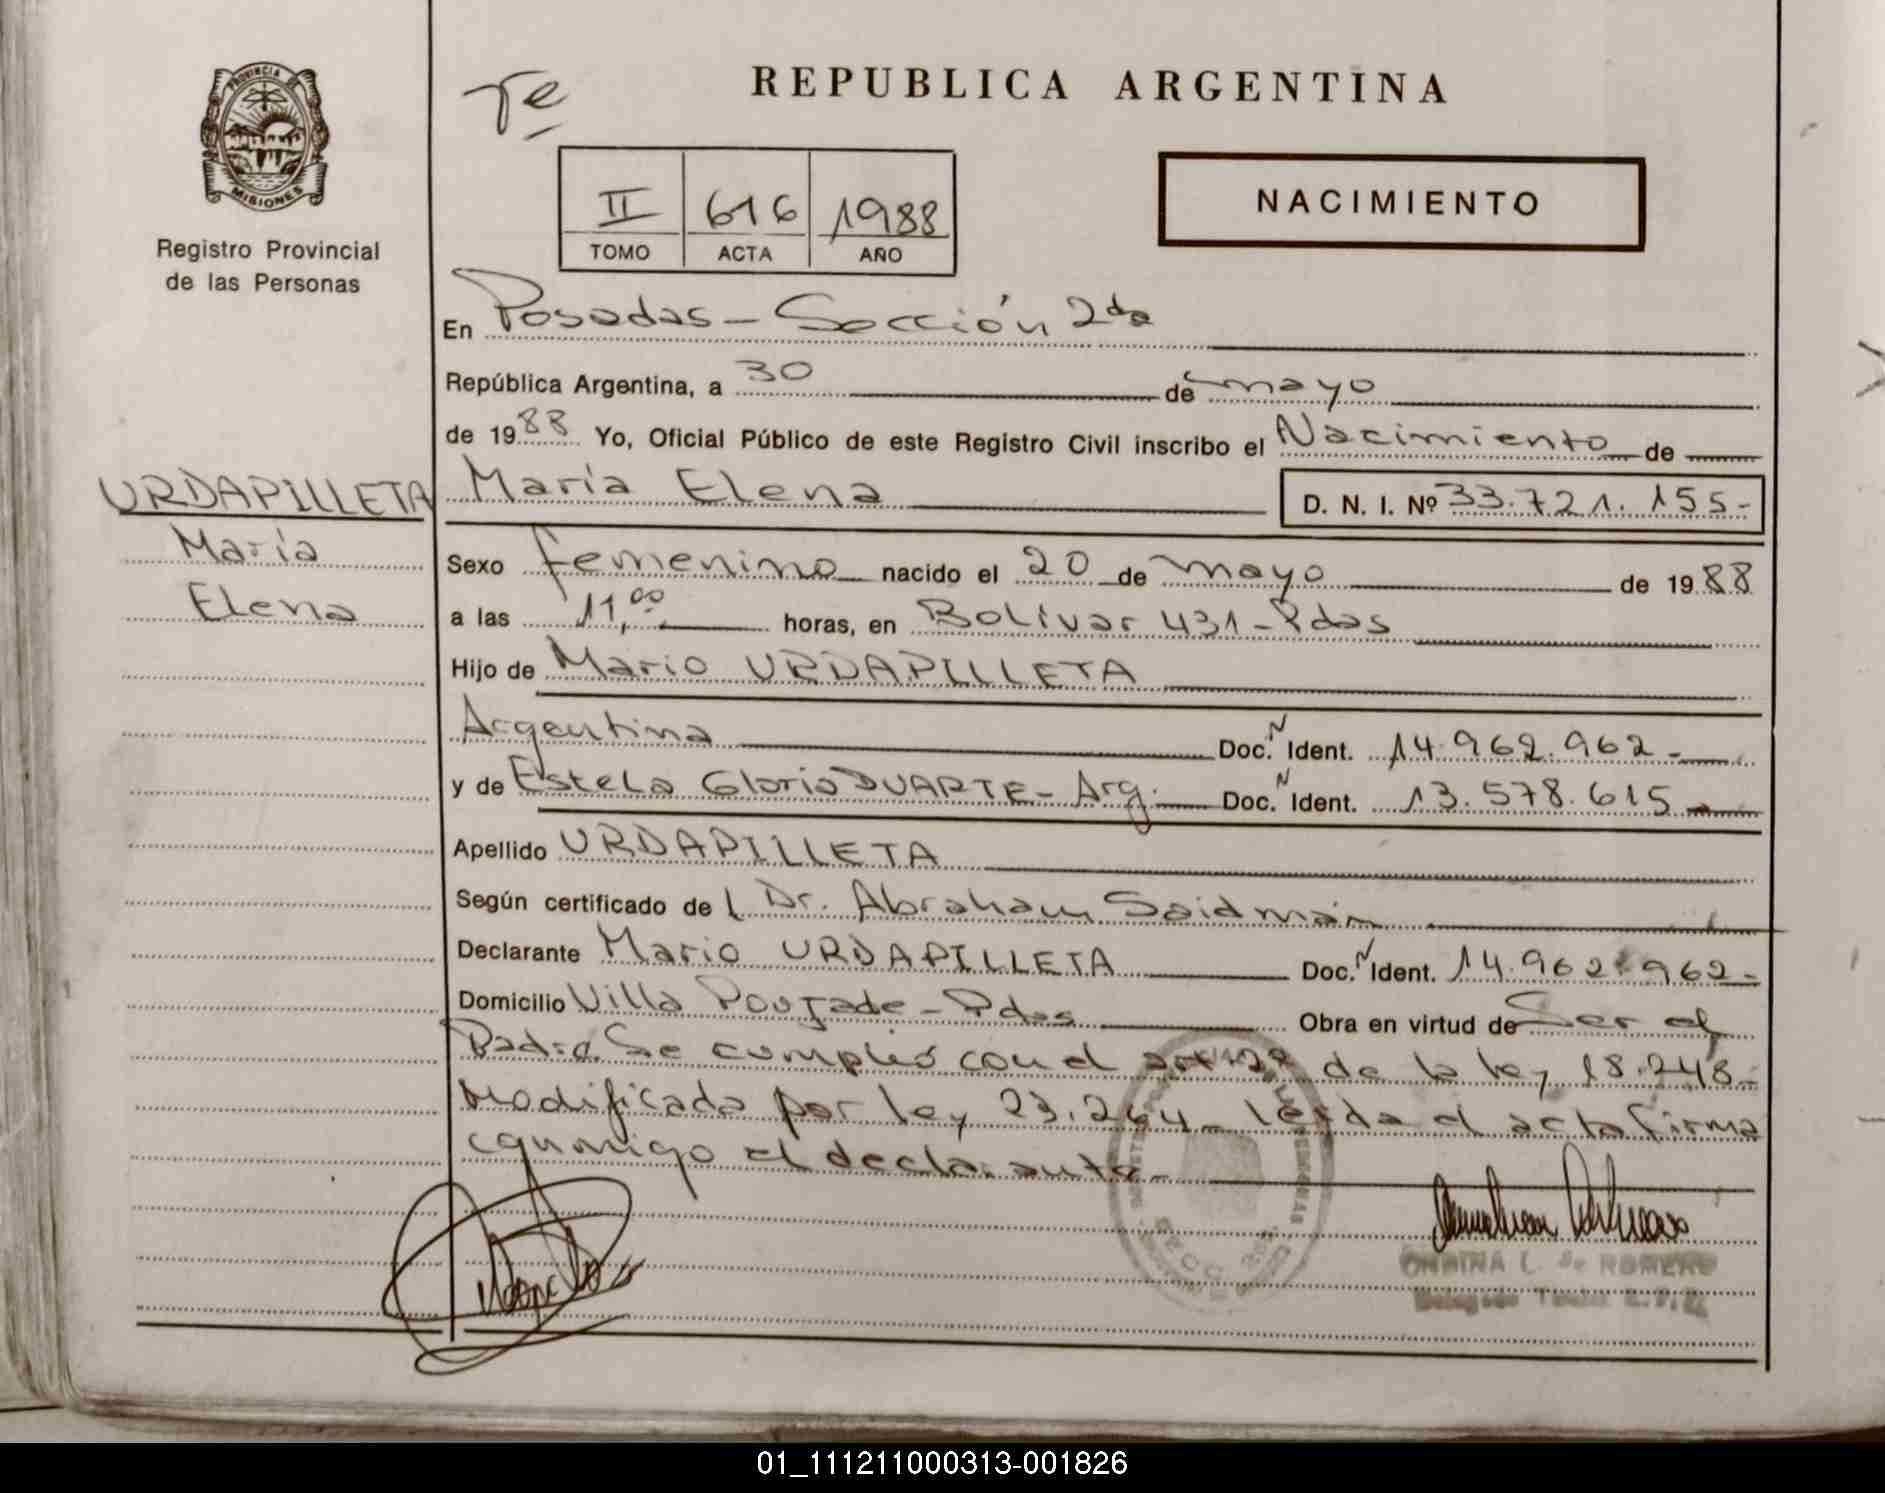 REPUBLICA ARGENTINA
PROVINCIA DE
MISIONES
Registro Provincial
de las Personas
II 616 1988
TOMO ACTA AÑO
NACIMIENTO
En Posadas - Sección 2da
República Argentina, a 30 de mayo
de 1988 Yo, Oficial Público de este Registro Civil inscribo el Nacimiento de
URDAPILLETA
María
Elena
María Elena D. N. I. Nº 33.721.155-
Sexo femenino nacido el 20 de mayo de 1988
a las 11,00 horas, en Bolívar 431 - Pdas
Hijo de Mario URDAPILLETA
Argentina Doc. N Ident. 14.962.962-
y de Estela Gloria DUARTE - Arg. Doc. N Ident. 13.578.615
Apellido URDAPILLETA
Según certificado de l Dr. Abraham Saidman
Declarante Mario URDAPILLETA Doc. N Ident. 14.962.962-
Domicilio Villa Poujade - Pdas Obra en virtud de Ser el
Padre. Se cumplió con el art 29 de la ley 18.248-
Modificada por ley 23.264- leída el acta firma
conmigo el declarante-
L. de ROMERO
01_111211000313-001826